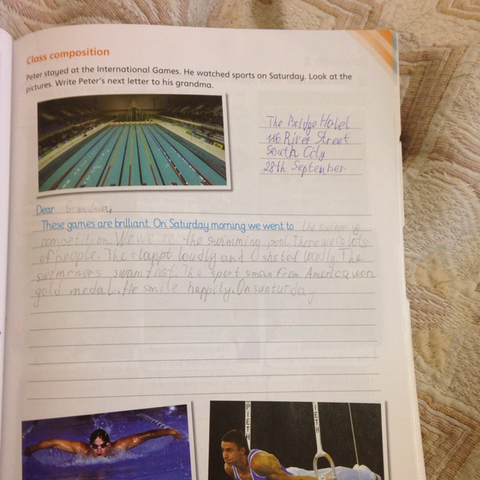 Class composition
Peter stayed at the International Games. He watched sports on Saturday. Look at the
pictures. Write Peter's next letter to his grandma.
The Bridge Hotel
116 River Street
South City
28th September
Dear Grandma,
These games are brilliant. On Saturday morning we went to the
competition. We the swimming pool. There was lots
of people. The loudly and I shoted loudly. The
swimmers swam fast. The sportsman from America won
gold medal. He smile happily. On
PIETH
IETH